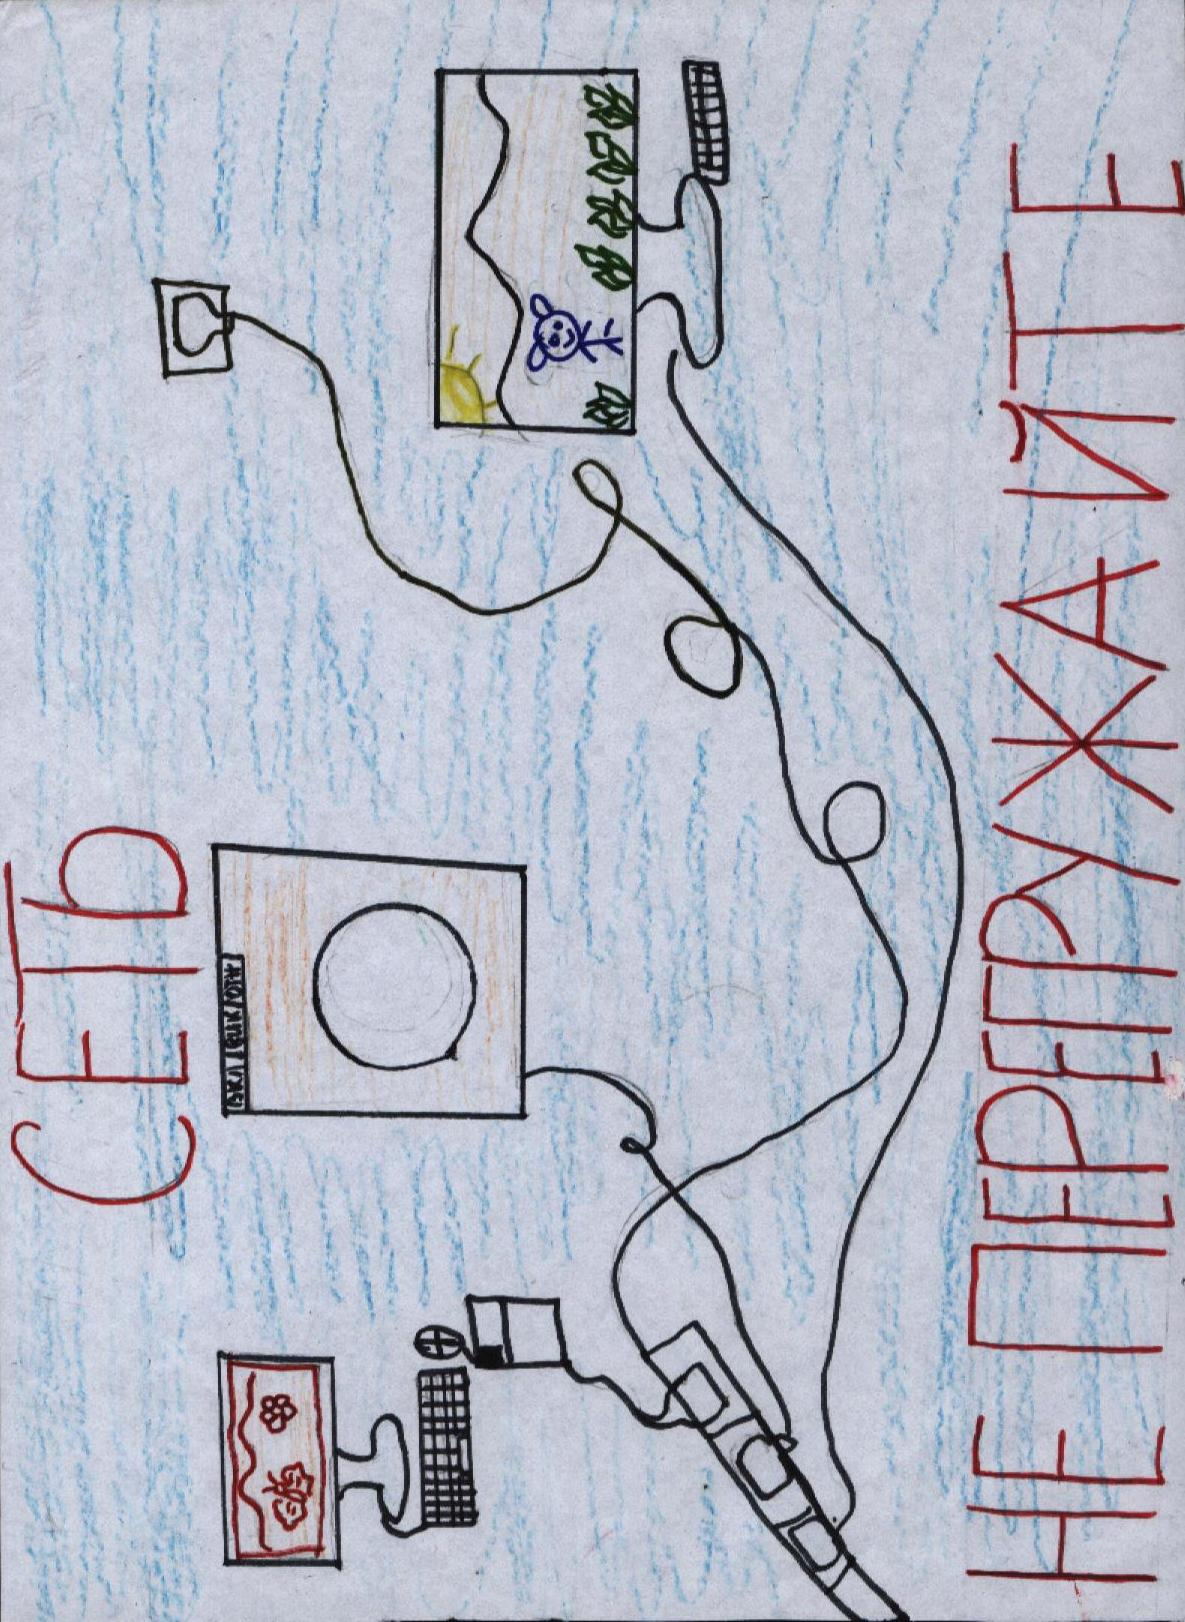 СЕТЬ
НЕ ПЕРЕГРУЖАЙТЕ